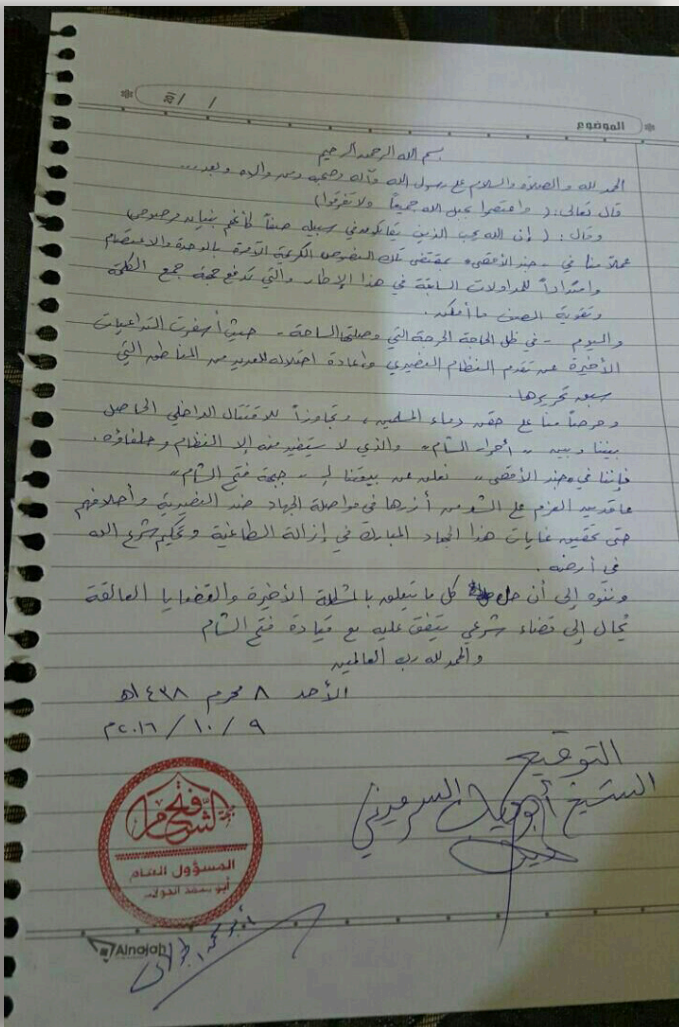 الموضوع
/ / 20
بسم الله الرحمن الرحيم
الحمد لله والصلاة والسلام على رسول الله وآله وصحبه ومن والاه وبعد...
قال تعالى: (واعتصموا بحبل الله جميعاً ولا تفرقوا)
وقال: (إن الله يحب الذين يقاتلون في سبيله صفاً كأنهم بنيان مرصوص)
عملاً منا في - جند الأقصى، بمقتضى تلك النصوص الكريمة الآمرة بالوحدة والاعتصام
وامتداداً للمداولات السابقة في هذا الإطار والتي تدفع جمع الكلمة
وتقوية الصف ما أمكن.
واليوم - في ظل الحاجة الحرجة التي وصلتها الساحة - حيث أسفرت التداعيات
الأخيرة عن تقدم النظام النصيري وإعادة احتلاله للعديد من المناطق التي
سبق تحريرها.
وحرصاً منا على حقن دماء المسلمين، وتجاوزاً للاقتتال الداخلي الحاصل
بيننا وبين " أحرار الشام" والذي لا يستفيد منه إلا النظام وحلفاؤه.
فإننا في "جند الأقصى" نعلن عن بيعتنا لـ " جبهة فتح الشام"
عاقدين العزم على الشد من أزرها في مواصلة الجهاد ضد النصيرية وأحلافهم
حتى تحقيق غايات هذا الجهاد المبارك في إزالة الطاغية وتحكيم شرع الله
في أرضه.
وننوه إلى أن حل كل ما يتعلق بالمشكلة الأخيرة والقضايا العالقة
يحال إلى قضاء شرعي يتفق عليه مع قيادة فتح الشام
والحمد لله رب العالمين
الأحد ٨ محرم ١٤٣٨هـ
٩ / ١٠ / ٢٠١٦م
التوقيع
الشيخ أبو دياب السرميني
فتح الشام
المسؤول العام
أبو محمد الجولاني
أبو محمد الجولاني
Alnajah